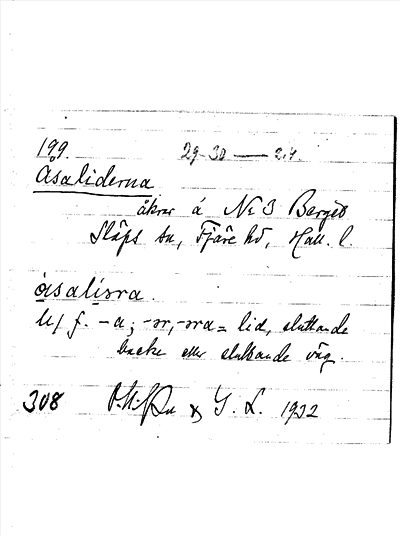 199. 29-30 — 2,4.
Åsaliderna
åkrar á No 3 Berget
Släps sn, Fjäre hd, Hall. l.
åsalíəra.
li/ f. -a; -ər, -əra = lid, sluttande
backe eller sluttande väg.
308 & G. L. 1932